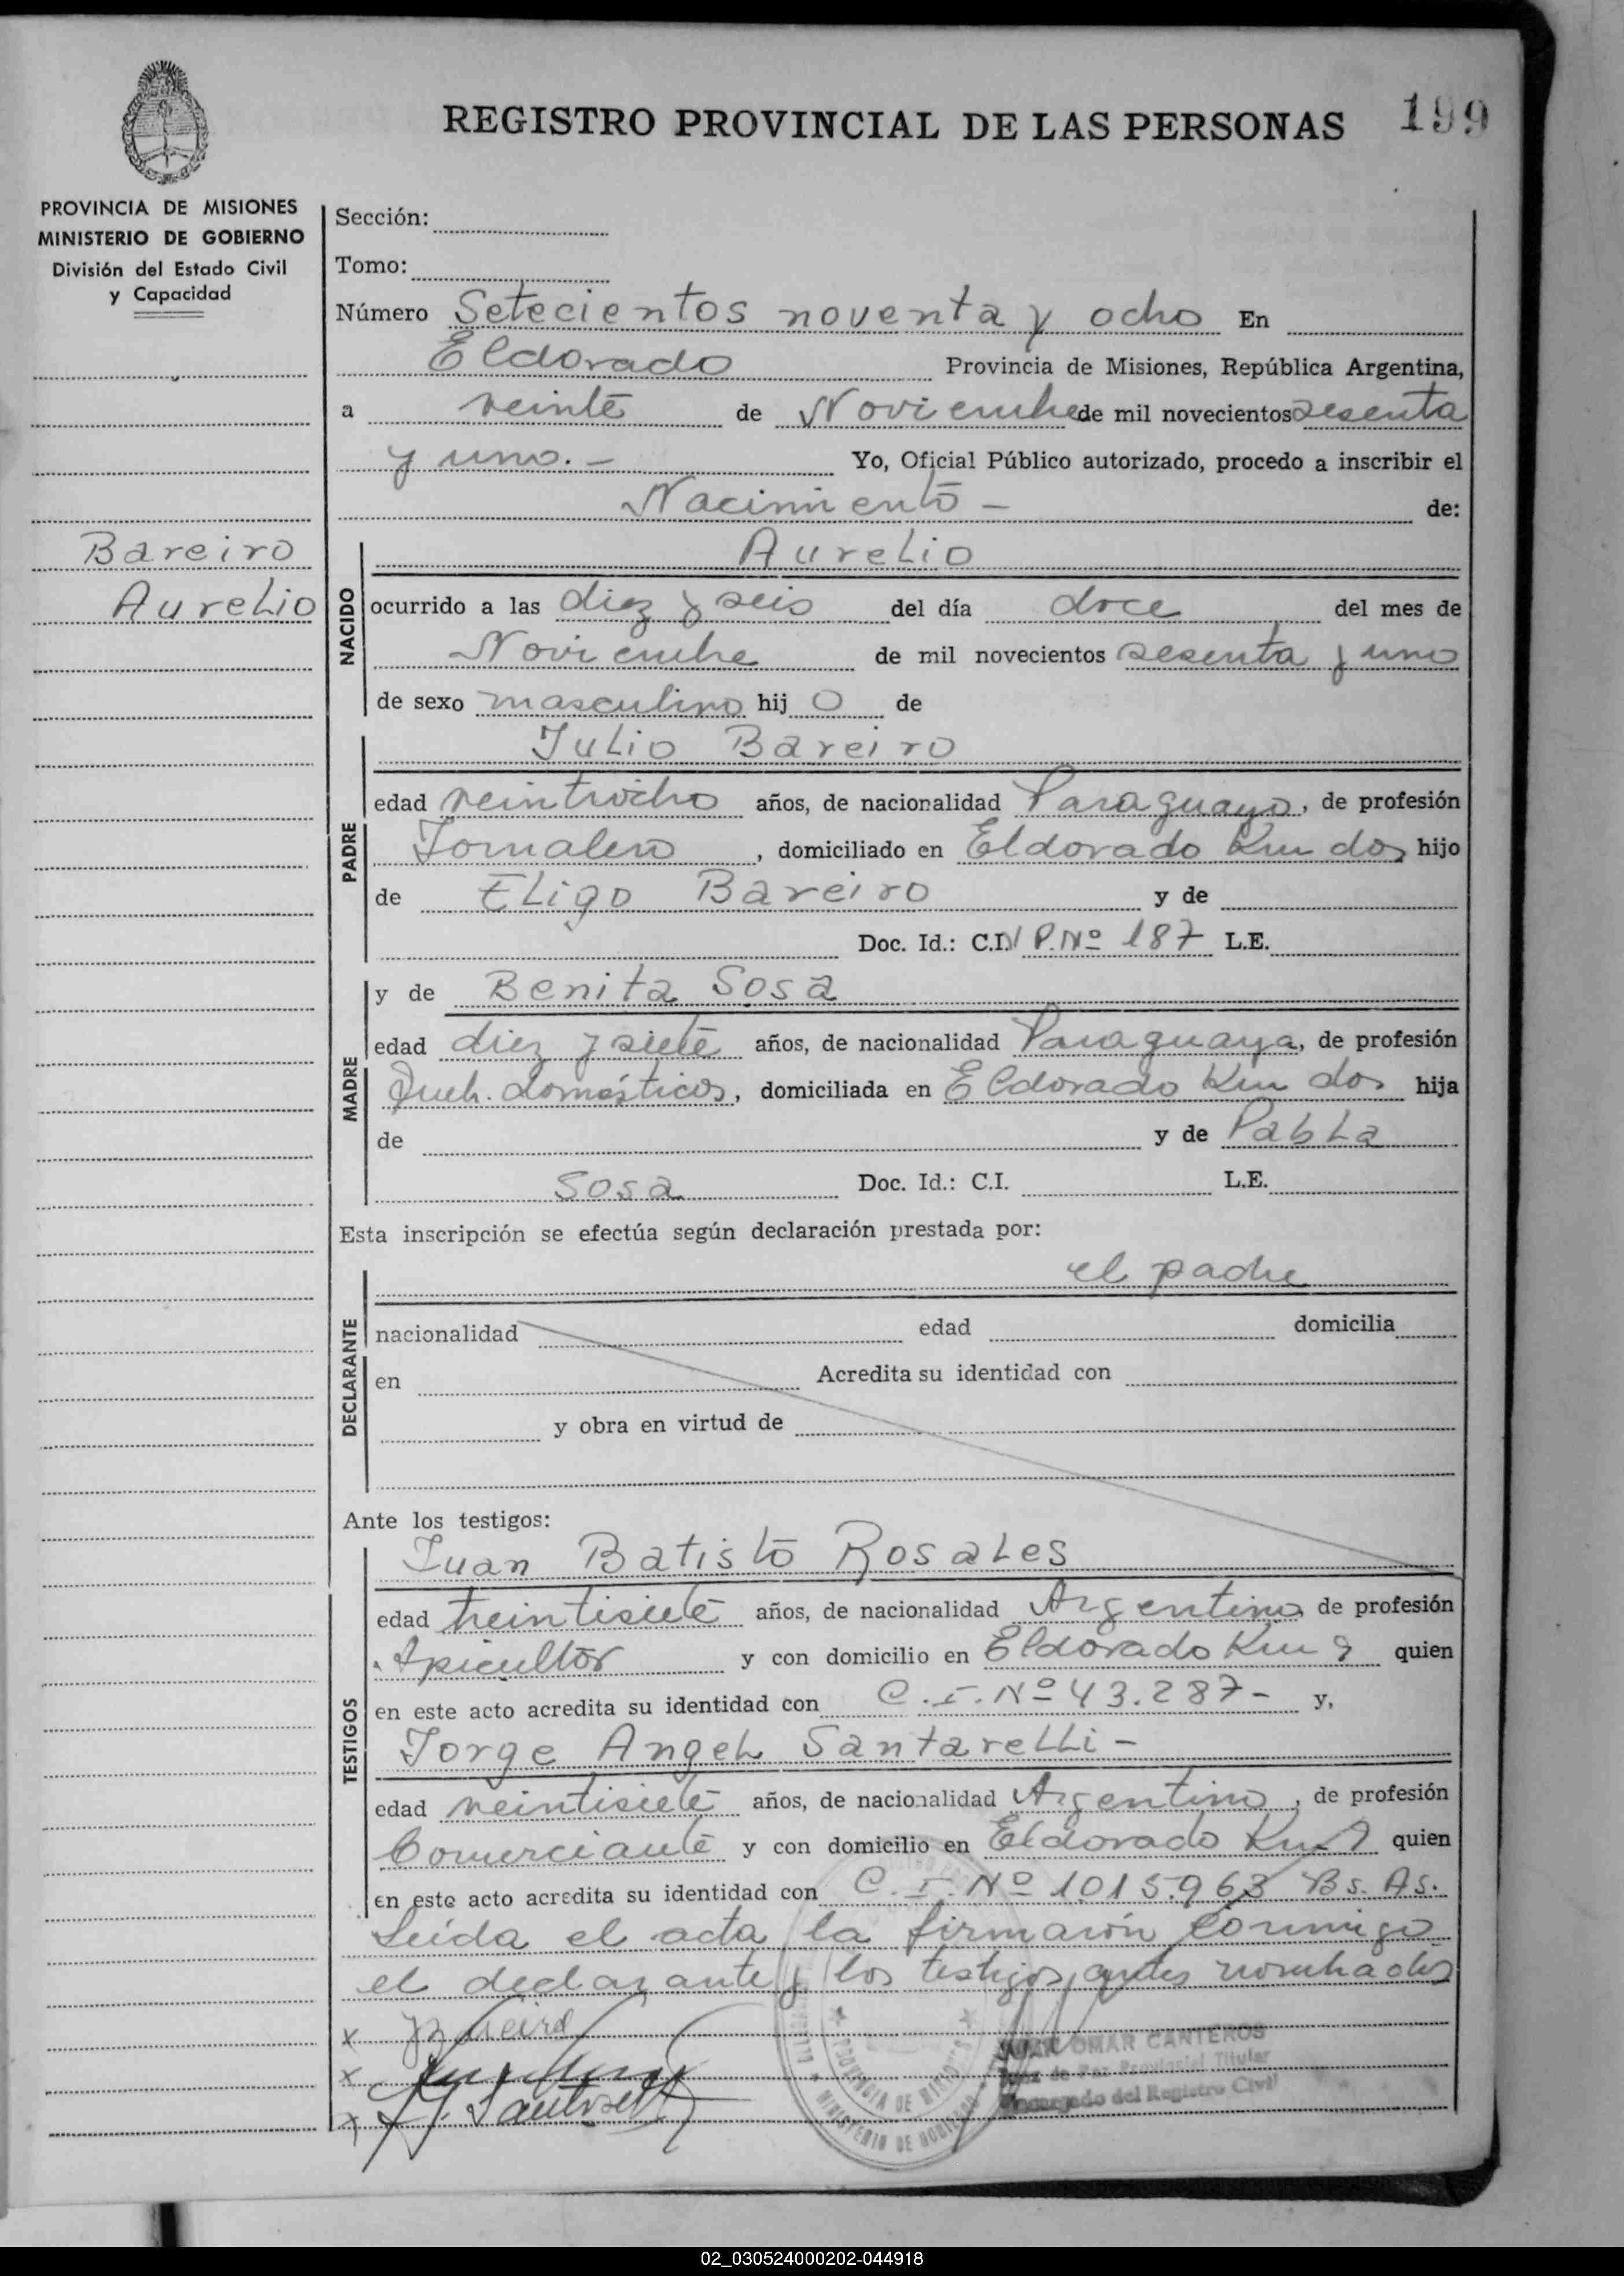 REGISTRO PROVINCIAL DE LAS PERSONAS 199
PROVINCIA DE MISIONES
MINISTERIO DE GOBIERNO
División del Estado Civil
y Capacidad
Bareiro
Aurelio
Sección:
Tomo:
Número Setecientos noventa y ocho En
Eldorado Provincia de Misiones, República Argentina,
a veinte de Noviembre de mil novecientos sesenta
y uno.- Yo, Oficial Público autorizado, procedo a inscribir el
Nacimiento - de:
NACIDO
Aurelio
ocurrido a las diez y seis del día doce del mes de
Noviembre de mil novecientos sesenta y uno
de sexo masculino hij o de
PADRE
Julio Bareiro
edad veintiocho años, de nacionalidad Paraguayo, de profesión
Jornalero, domiciliado en Eldorado Km dos hijo
de Eligo Bareiro y de
Doc. Id.: C.I. P.Nº 187 L.E.
MADRE
y de Benita Sosa
edad diez y siete años, de nacionalidad Paraguaya, de profesión
Queh. domésticos, domiciliada en Eldorado Km dos hija
de y de Pabla
Sosa Doc. Id.: C.I. L.E.
Esta inscripción se efectúa según declaración prestada por:
DECLARANTE
el padre
nacionalidad edad domicilia
en Acredita su identidad con
y obra en virtud de
Ante los testigos:
TESTIGOS
Juan Batisto Rosales
edad treintisiete años, de nacionalidad Argentino de profesión
Apicultor y con domicilio en Eldorado Km 9 quien
en este acto acredita su identidad con C.I. Nº 43.287- y,
Jorge Angel Santarelli -
edad veintisiete años, de nacionalidad Argentino, de profesión
Comerciante y con domicilio en Eldorado Km quien
en este acto acredita su identidad con C.I. Nº 1.015.963 Bs. As.
Leída el acta la firmarón conmigo
el declarante y los testigos antes nombrados
x
x
x
PROVINCIA DE MISIONES
MINISTERIO DE GOBIERNO
JUAN OMAR CANTEROS
Juez de Paz Provincial Titular
Encargado del Registro Civil
02_030524000202-044918